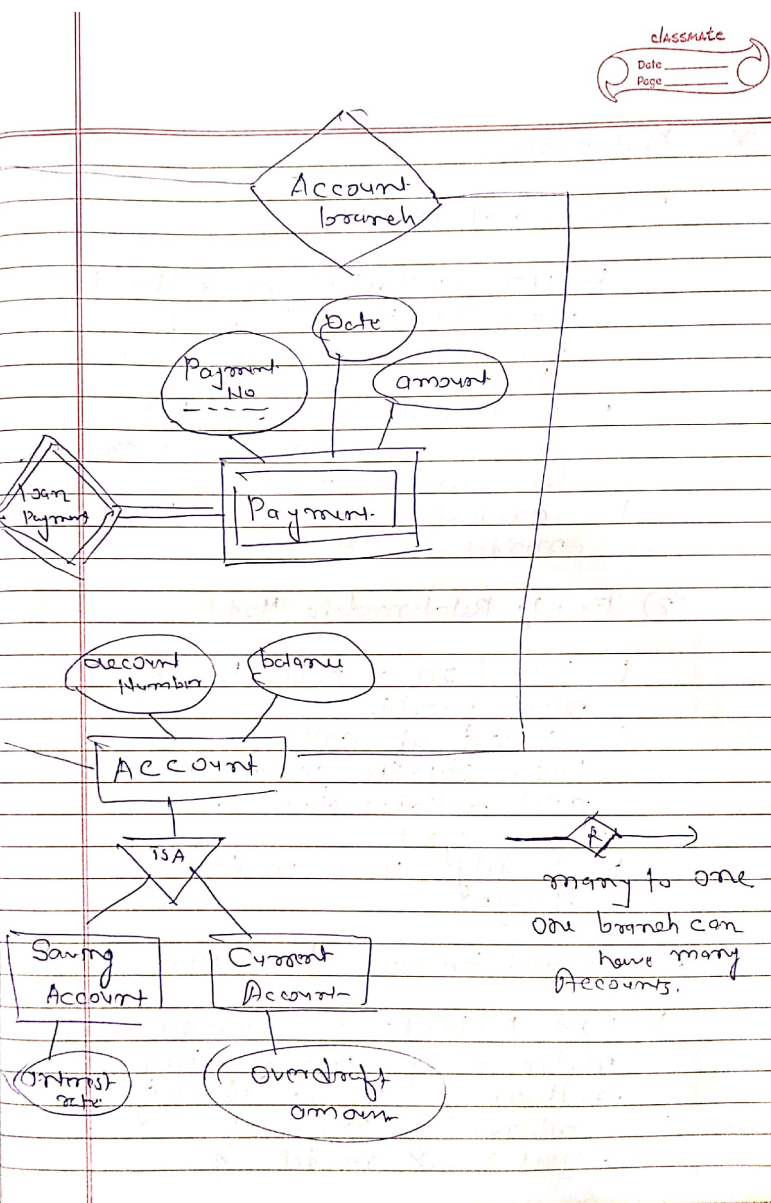 classmate
Date
Page
Account
branch
Date
Payment
No
amount
Loan
Payment
Payment
account
Number
balance
Account
ISA
R
many to one
one branch can
have many
Accounts.
Saving
Account
Current
Account
interest
rate
overdraft
amoun